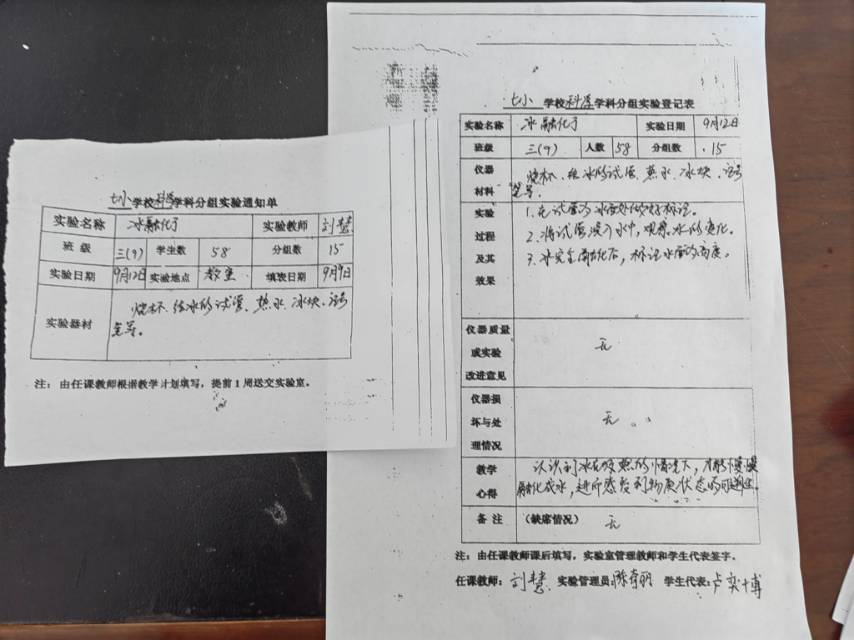 七小学校科学学科分组实验通知单
实验名称 冰融化了 实验教师 刘慧
班级 三(9) 学生数 58 分组数 15
实验日期 9月12日 实验地点 教室 填表日期 9月9日
实验器材 烧杯、结冰的试管、热水、冰块、记号
笔等。
注：由任课教师根据教学计划填写，提前1周送交实验室。
七小学校科学学科分组实验登记表
实验名称 冰融化了 实验日期 9月12日
班级 三(9) 人数 58 分组数 15
仪器材料 烧杯、结冰的试管、热水、冰块、记号
笔等。
实验过程及其效果 1.在试管内冰面处做好标记。
2.将试管浸入水中，观察冰的变化。
3.冰完全融化后，标记水面的高度。
仪器质量或实验改进意见 无
仪器损坏与处理情况 无。
教学心得 认识到冰在受热的情况下，才能慢慢
融化成水，进而感受到物质状态的可逆性。
备注 (缺席情况) 无
注：由任课教师课后填写，实验室管理教师和学生代表签字。
任课教师：刘慧 实验管理员：陈 学生代表：卢奕博